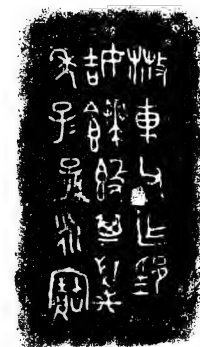 散車父乍
姞𩟄𣪘其萬年
孫子永寶